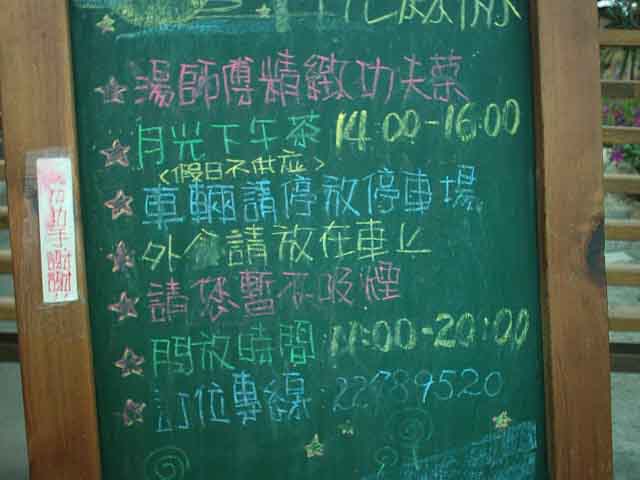 湯師傅精緻功夫菜
月光下午茶 14:00-16:00
<假日不供應>
車輛請停放停車場
外食請放在車上
請您暫不吸煙
開放時間 11:00-20:00
訂位專線: 22789520
切勿手